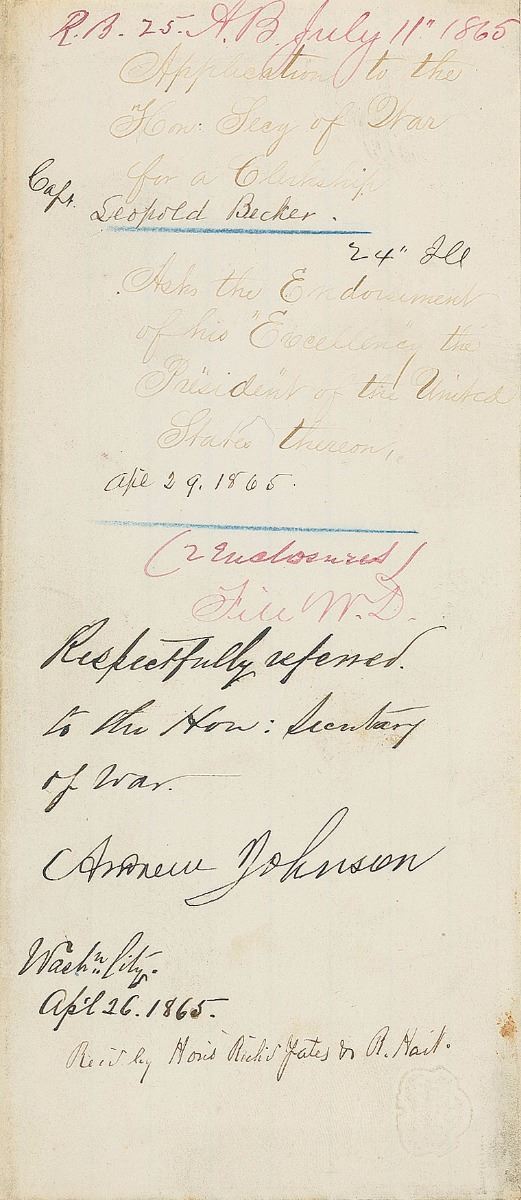 R.B. 25. A.B. July 11" 1865
Application to the
Hon: Secy of War
for a Clerkship
Capt. Leopold Becker.
24" Ill
Asks the Endorsement
of his "Excellency the
President of the United
States thereon,
Apl 29. 1865.
(2 Enclosures)
File W.D.
Respectfully referred
to the Hon: Secretary
of War.
Andrew Johnson
Wash'n City.
Apl 26. 1865.
by Hons Rich'd Yates & R.